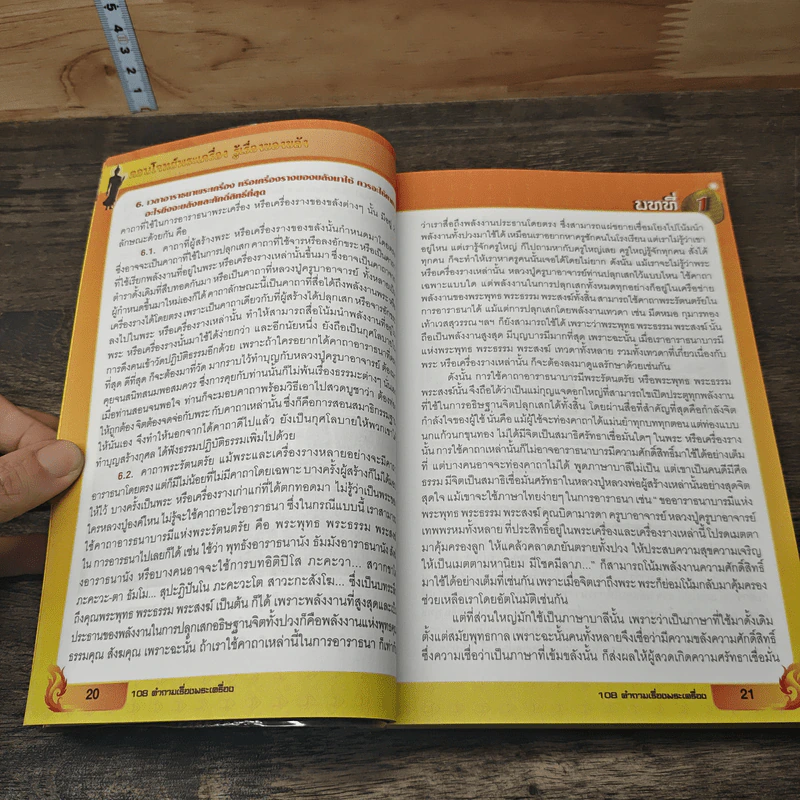 5 4 3 2 1
ตอบโจทย์พระเครื่อง รู้เรื่องของขลัง
6. เวลาอาราธนาพระเครื่อง หรือเครื่องรางของขลังมาใช้ ควรจะใช้
อะไรจึงจะขลังและศักดิ์สิทธิ์ที่สุด
คาถาที่ใช้ในการอาราธนาพระเครื่อง หรือเครื่องรางของขลังต่างๆ นั้น มีอยู่
ลักษณะด้วยกัน คือ
6.1. คาถาที่ผู้สร้างพระ หรือเครื่องรางของขลังนั้นกำหนดมาโดย
ซึ่งอาจจะเป็นคาถาที่ใช้ในการปลุกเสก คาถาที่ใช้จารหรือลงอักขระ หรือเป็นคาถา
ที่ใช้เรียกพลังงานที่อยู่ในพระ หรือเครื่องรางเหล่านั้นขึ้นมา ซึ่งอาจจะเป็นคาถา
ตำราดั้งเดิมที่สืบทอดกันมา หรือเป็นคาถาที่หลวงปู่ครูบาอาจารย์ ทั้งหลาย
ผู้กำหนดขึ้นมาใหม่เองก็ได้ คาถาลักษณะนี้เป็นคาถาที่สื่อได้ถึงพลังงานพระ
เครื่องรางได้โดยตรง เพราะเป็นคาถาเดียวกับที่ผู้สร้างได้ปลุกเสก หรือจารอักขระ
ลงไปในพระ หรือเครื่องรางเหล่านั้น ทำให้สามารถสื่อโน้มนำพลังงานที่อยู่ใน
พระ หรือเครื่องรางนั้นมาใช้ได้ง่ายกว่า และอีกนัยหนึ่ง ยังถือเป็นกุศโลบาย
การดึงคนเข้าวัดปฏิบัติธรรมอีกด้วย เพราะถ้าใครอยากได้คาถาอาราธนาที่
ที่สุด ดีที่สุด ก็จะต้องมาที่วัด มากราบไว้ทำบุญกับหลวงปู่ครูบาอาจารย์ ต้อง
คุยจนสนิทสนมพอสมควร ซึ่งการคุยกับท่านนั้นก็ไม่พ้นเรื่องธรรมะต่างๆ
เมื่อท่านสอนจนพอใจ ท่านก็จะมอบคาถาพร้อมวิธีเอาไปสวดบูชาว่า ต้อง
ให้ถูกต้อง จิตต้องจดจ่อกับพระ กับคาถาเหล่านั้น ซึ่งก็คือการสอนสมาธิกรรมฐาน
ให้นั่นเอง จึงทำให้นอกจากได้คาถาดีไปแล้ว ยังเป็นกุศโลบายให้พวกเขา
ทำบุญสร้างกุศล ได้ฟังธรรมปฏิบัติธรรมเพิ่มไปด้วย
6.2. คาถาพระรัตนตรัย แม้พระและเครื่องรางหลายอย่างจะมีคาถา
อาราธนาโดยตรง แต่ก็มีไม่น้อยที่ไม่มีคาถาโดยเฉพาะ บางครั้งผู้สร้างก็ไม่ได้
ให้ไว้ บางครั้งเป็นพระ หรือเครื่องรางเก่าแก่ที่ได้ตกทอดมา ไม่รู้ว่าเป็นพระ
ใครหลวงปู่องค์ไหน ไม่รู้จะใช้คาถาอะไรอาราธนา ซึ่งในกรณีแบบนี้ เราสามารถ
ใช้คาถาอาราธนาบารมีแห่งพระรัตนตรัย คือ พระพุทธ พระธรรม พระสงฆ์
ใน การอาราธนาไปเลยก็ได้ เช่น ใช้ว่า พุทธังอาราธนานัง ธัมมังอาราธนานัง สัง
งอาราธนานัง หรือบางคนอาจจะใช้การบทอิติปิโส ภะคะวา... สวากขา
ภะคะวะ-ตา ธัมโม... สุปะฏิปันโน ภะคะวะโต สาวะกะสังโฆ... ซึ่งเป็นบท
ถึงคุณพระพุทธ พระธรรม พระสงฆ์ เป็นต้น ก็ได้ เพราะพลังงานที่สูงสุดและ
ประธานของพลังงานในการปลุกเสกอธิษฐานจิตทั้งปวงก็คือพลังงานแห่งพุทธคุณ
ธรรมคุณ สังฆคุณ เพราะฉะนั้น ถ้าเราใช้คาถาเหล่านี้ในการอาราธนา ก็เท่ากับ
20 108 คำถามเรื่องพระเครื่อง
บทที่ 1
ว่าเราสื่อถึงพลังงานประธานโดยตรง ซึ่งสามารถแผ่ขยายเชื่อมโยงไปโน้มนำ
พลังงานทั้งปวงมาใช้ได้ เหมือนเราอยากหาครูซักคนในโรงเรียน แต่เราไม่รู้ว่าเขา
อยู่ไหน แต่เรารู้จักครูใหญ่ ก็ไปถามหากับครูใหญ่เลย ครูใหญ่รู้จักทุกคน สั่งได้
ทุกคน ก็จะทำให้เราหาครูคนนั้นเจอได้โดยไม่ยาก ดังนั้น แม้เราจะไม่รู้ว่าพระ
หรือเครื่องรางเหล่านั้น หลวงปู่ครูบาอาจารย์ท่านปลุกเสกไว้แบบไหน ใช้คาถา
เฉพาะแบบใด แต่พลังงานในการปลุกเสกทั้งหมดทุกอย่างก็อยู่ในเครือข่าย
พลังงานของพระพุทธ พระธรรม พระสงฆ์ทั้งสิ้น สามารถใช้คาถาพระรัตนตรัยใน
การอาราธนาได้ แม้แต่การปลุกเสกโดยพลังงานเทวดา เช่น มีดหมอ กุมารทอง
เท้าเวสสุวรรณ ฯลฯ ก็ยังสามารถใช้ได้ เพราะว่าพระพุทธ พระธรรม พระสงฆ์ นั้น
ถือเป็นพลังงานสูงสุด มีบุญบารมีมากที่สุด เพราะฉะนั้น เมื่อเราอาราธนาบารมี
แห่งพระพุทธ พระธรรม พระสงฆ์ เทวดาทั้งหลาย รวมทั้งเทวดาที่เกี่ยวเนื่องกับ
พระ หรือเครื่องรางเหล่านั้น ก็จะต้องลงมาดูแลรักษาด้วยเช่นกัน
ดังนั้น การใช้คาถาอาราธนาบารมีพระรัตนตรัย หรือพระพุทธ พระธรรม
พระสงฆ์นั้น จึงถือได้ว่าเป็นแม่กุญแจดอกใหญ่ที่สามารถไขเปิดประตูทุกพลังงาน
ที่ใช้ในการอธิษฐานจิตปลุกเสกได้ทั้งสิ้น โดยผ่านสื่อที่สำคัญที่สุดคือกำลังจิต
กำลังใจของผู้ใช้ นั่นคือ แม้ผู้ใช้จะท่องคาถาได้แม่นยำทุกบททุกตอน แต่ท่องแบบ
นกแก้วนกขุนทอง ไม่ได้มีจิตเป็นสมาธิศรัทธาเชื่อมั่นใดๆ ในพระ หรือเครื่องราง
นั้น การใช้คาถาเหล่านั้นก็ไม่อาจอาราธนาบารมีของความศักดิ์สิทธิ์มาใช้ได้อย่าง
เต็มที่ แต่บางคนอาจจะท่องคาถาไม่ได้ พูดภาษาบาลีไม่เป็น แต่เขาเป็นคนดีมีศีล
ธรรม มีจิตเป็นสมาธิเชื่อมั่นศรัทธาในหลวงปู่หลวงพ่อผู้สร้างเหล่านั้นอย่างสุดจิต
สุดใจ แม้เขาจะใช้ภาษาไทยง่ายๆ ในการอาราธนา เช่น " ขออาราธนาบารมีแห่ง
พระพุทธ พระธรรม พระสงฆ์ คุณบิดามารดา ครูบาอาจารย์ หลวงปู่ครูบาอาจารย์
เทพพรหมทั้งหลาย ที่ประสิทธิ์อยู่ในพระเครื่องและเครื่องรางเหล่านี้โปรดเมตตา
มาคุ้มครองลูก ให้แคล้วคลาดภยันตรายทั้งปวง ให้ประสบความสุขความเจริญ
ให้เป็นเมตตามหานิยม มีโชคมีลาภ..." ก็สามารถโน้มพลังงานความศักดิ์สิทธิ์
มาใช้ได้อย่างเต็มที่เช่นกัน เพราะเมื่อจิตเราถึงพระ พระก็ย่อมโน้มกลับมาคุ้มครอง
ช่วยเหลือเราโดยอัตโนมัติเช่นกัน
แต่ที่ส่วนใหญ่มักใช้เป็นภาษาบาลีนั้น เพราะว่าเป็นภาษาที่ใช้มาดั้งเดิม
ตั้งแต่สมัยพุทธกาล เพราะฉะนั้นคนทั้งหลายจึงเชื่อว่ามีความขลังความศักดิ์สิทธิ์
ซึ่งความเชื่อว่าเป็นภาษาที่เข้มขลังนั้น ก็ส่งผลให้ผู้สวดเกิดความศรัทธาเชื่อมั่น
108 คำถามเรื่องพระเครื่อง 21